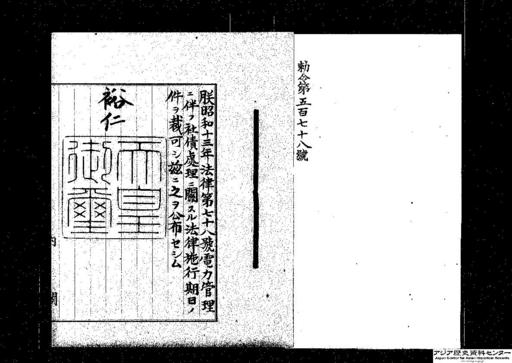 勅令第五百七十八號
朕昭和十三年法律第七十八號電力管理
ニ伴フ社債處理ニ關スル法律施行期日ノ
件ヲ裁可シ茲ニ之ヲ公布セシム
裕仁
天皇
御璽
内
閣
アジア歴史資料センター
Japan Center for Asian Historical Records